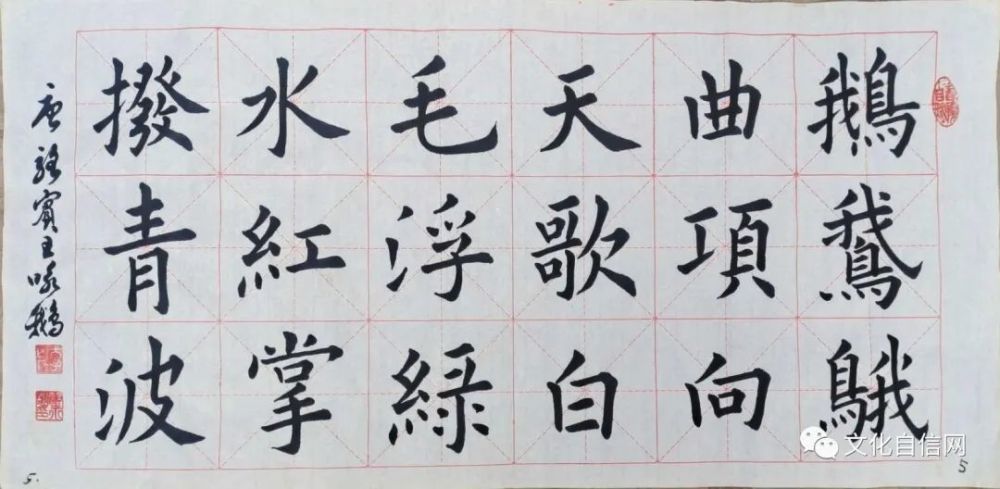 鵝鵞䳘
曲項向
天歌白
毛浮綠
水紅掌
撥青波
唐 駱賓王 咏鵝
文化自信网
5
5.